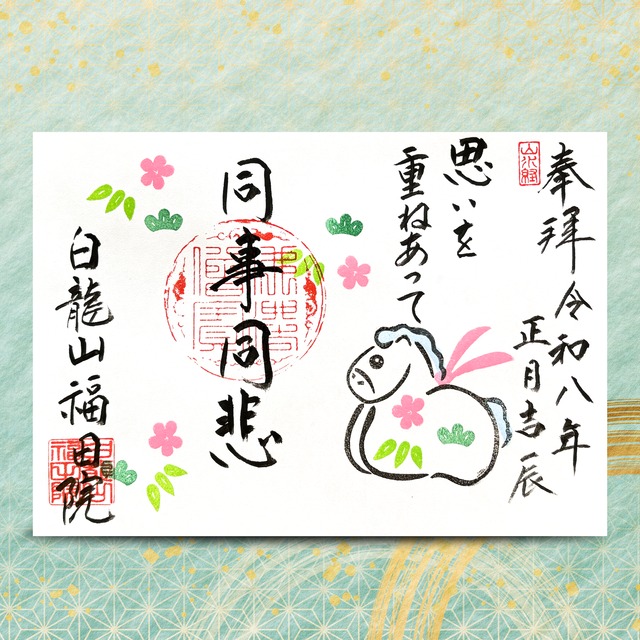 奉拝 令和八年
正月吉辰
思いを
重ねあって
同事同悲
白龍山福田院